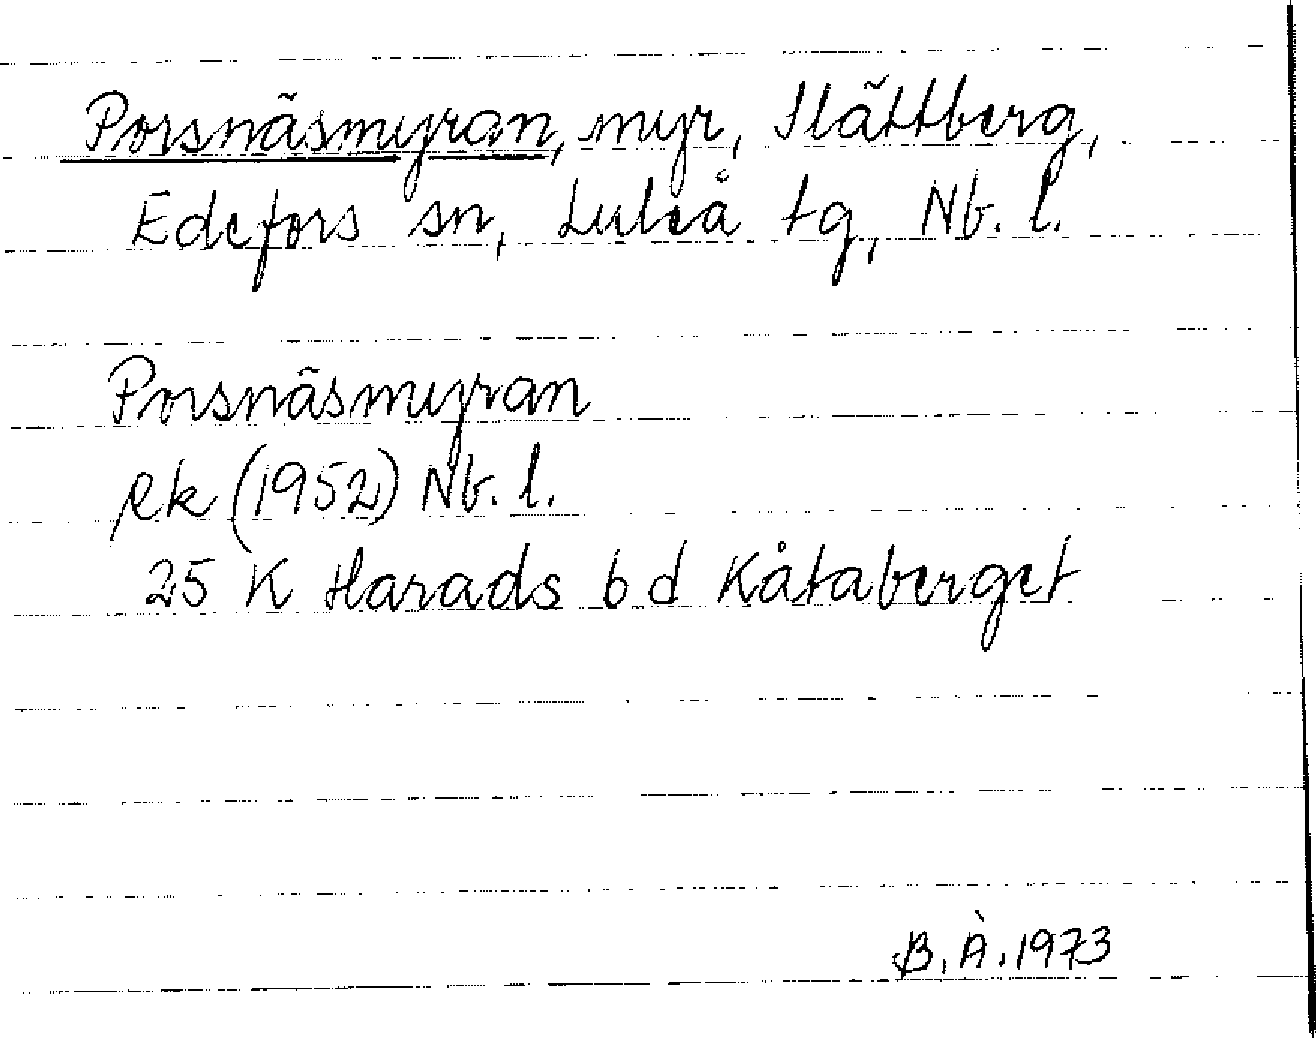 Porsnäsmyran, myr, Slättberg,
Edefors sn, Luleå tg, Nb. l.
Porsnäsmyran
ek (1952) Nb. l.
25 K Harads b d Kåtaberget
B. Å. 1973